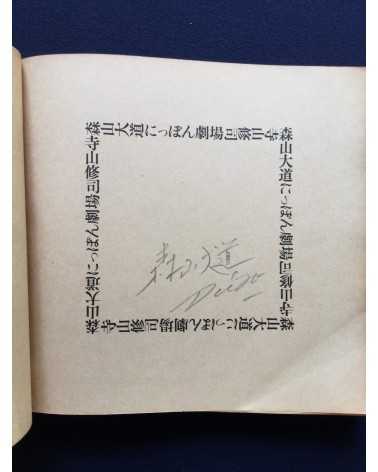 森山大道にっぽん劇場 寺山修司
森山大道にっぽん劇場 寺山修司
森山大道
Daido
森山大道にっぽん劇場 寺山修司
森山大道にっぽん劇場 寺山修司